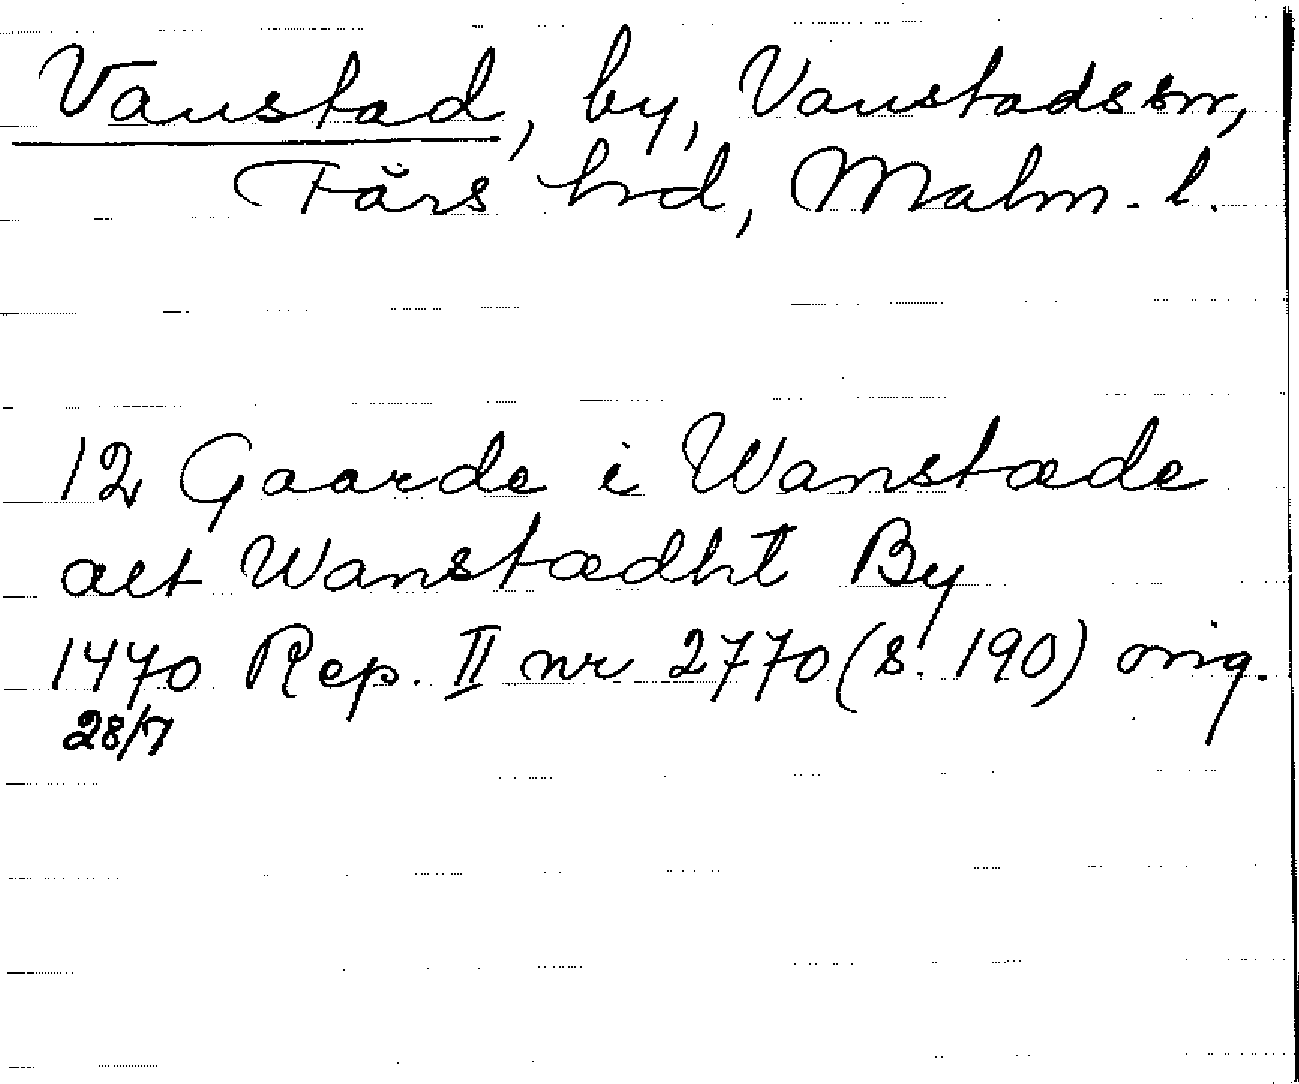 Vanstad, by, Vanstads sn,
Färs hrd, Malm. l.
12 Gaarde i Wanstæde
alt Wanstædht By
1470 Rep. II nr 2770 (s. 190) orig.
28/7